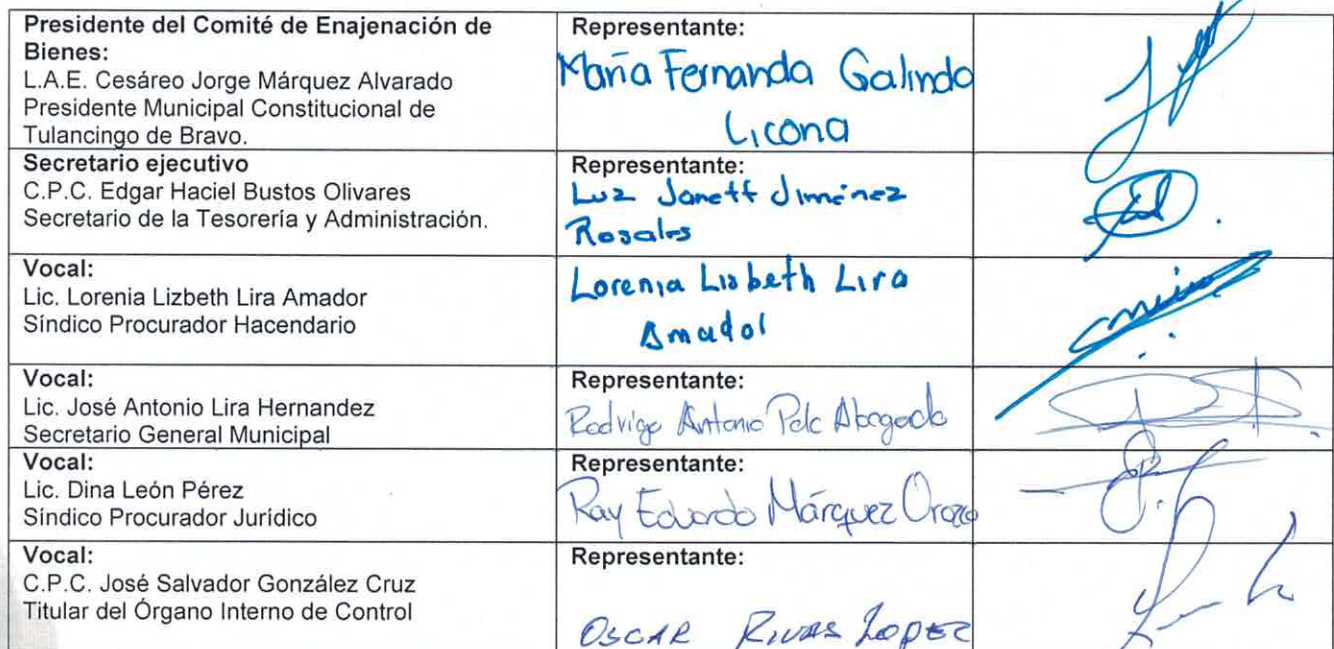 Presidente del Comité de Enajenación de
Bienes:
L.A.E. Cesáreo Jorge Márquez Alvarado
Presidente Municipal Constitucional de
Tulancingo de Bravo.
Representante:
María Fernanda Galindo
Licona
Secretario ejecutivo
C.P.C. Edgar Haciel Bustos Olivares
Secretario de la Tesorería y Administración.
Representante:
Luz Janett Jiménez
Rosales
Vocal:
Lic. Lorenia Lizbeth Lira Amador
Síndico Procurador Hacendario
Lorenia Lisbeth Lira
Amador
Vocal:
Lic. José Antonio Lira Hernandez
Secretario General Municipal
Representante:
Rodrigo Antonio
Vocal:
Lic. Dina León Pérez
Síndico Procurador Jurídico
Representante:
Ray Eduardo Márquez Orozco
Vocal:
C.P.C. José Salvador González Cruz
Titular del Órgano Interno de Control
Representante:
OSCAR RIVAS LOPEZ